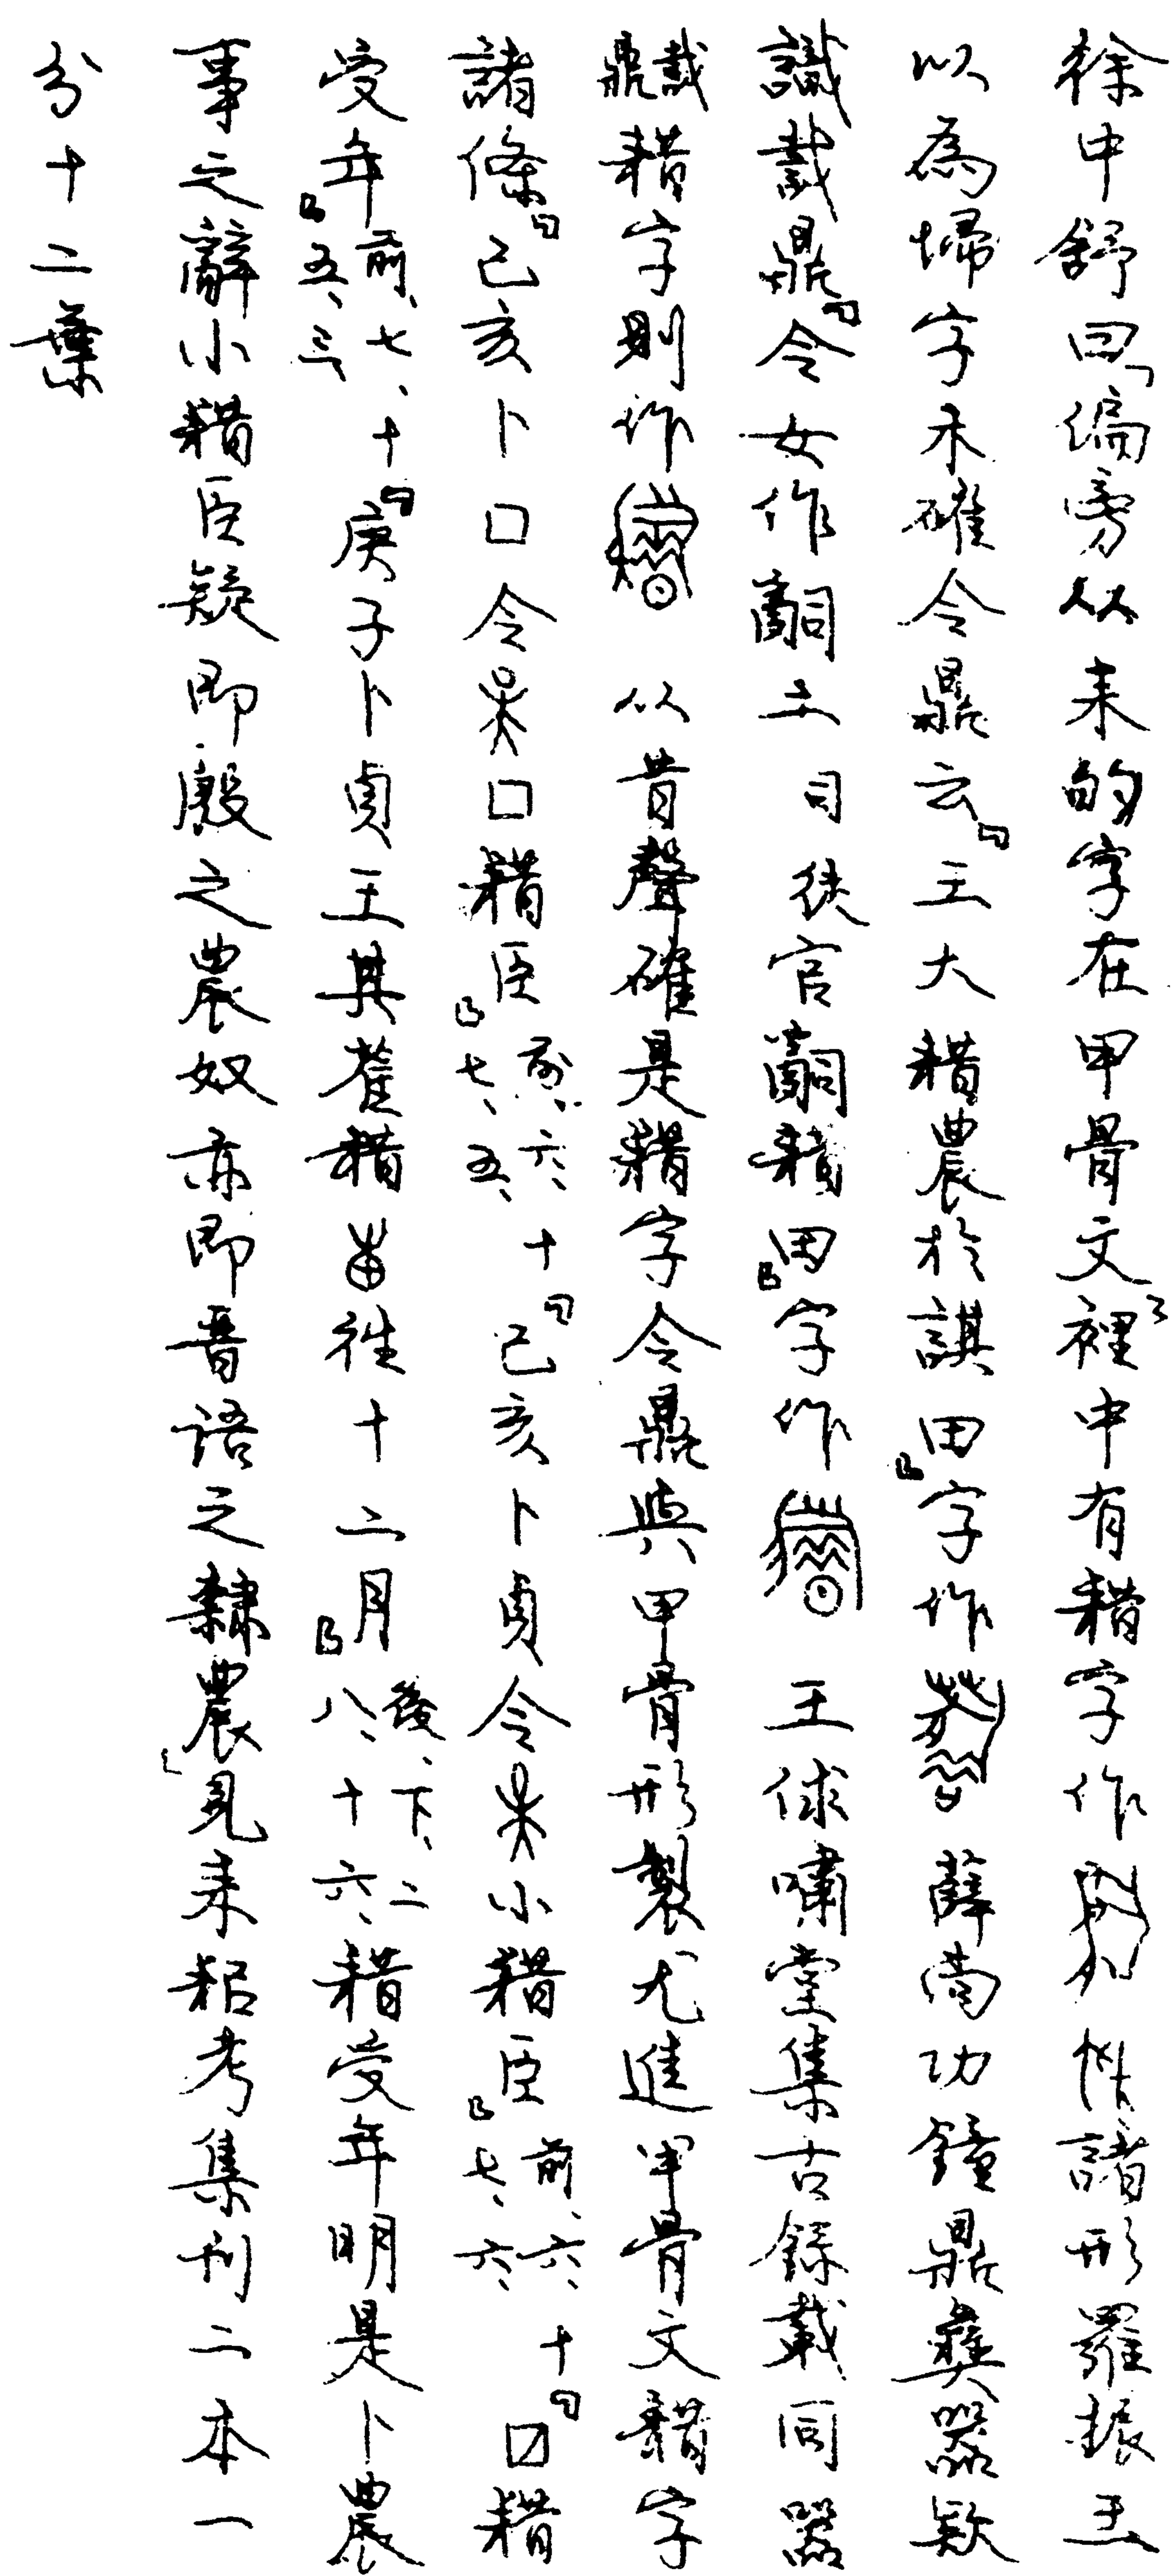 徐中舒曰「偏旁从耒的字在甲骨文裡中有耤字作諸形羅振玉
以為埽字未確令鼎云「王大耤農於諆田」字作薛尚功鐘鼎彝器款
識𢦏鼎「令女作𤔲土司徒官𤔲耤田」字作王俅嘯堂集古錄載同器
鼎𢦏耤字則作以昔聲確是耤字令鼎與甲骨形製尤進甲骨文耤字
諸條「己亥卜口令口耤臣」前、六、十七、五、「己亥卜貞令小耤臣」前、六、十七、六、「囗耤
受年」前、七、十五、三、「庚子卜貞王其雚耤往十二月」後、下、二八、十六、耤受年明是卜農
事之辭小耤臣疑即殷之農奴亦即晉語之隸農」見耒耜考集刊二本一
分十二葉